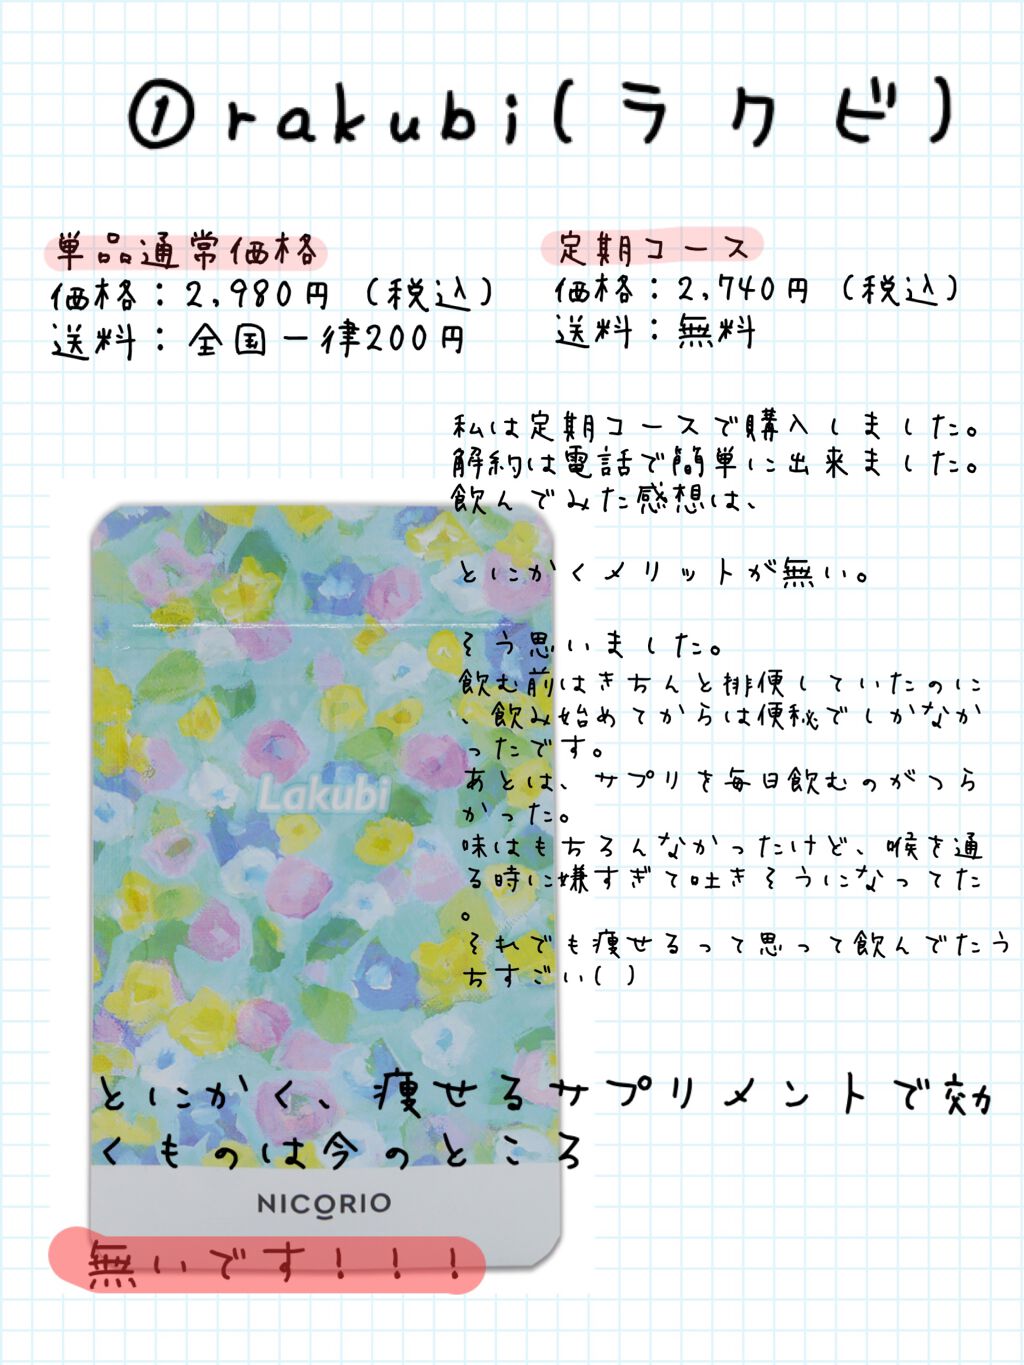 ①rakubi(ラクビ)
単品通常価格
価格：2,980円（税込）
送料：全国一律200円
定期コース
価格：2,740円（税込）
送料：無料
私は定期コースで購入しました。
解約は電話で簡単に出来ました。
飲んでみた感想は、
とにかくメリットが無い。
そう思いました。
飲む前はきちんと排便していたのに
、飲み始めてからは便秘でしかなか
ったです。
あとは、サプリを毎日飲むのがつら
かった。
味はもちろんなかったけど、喉を通
る時に嫌すぎて吐きそうになってた
。
それでも痩せるって思って飲んでたう
ちすごい( )
Lakubi
とにかく、痩せるサプリメントで効
くものは今のところ
NICORIO
無いです！！！